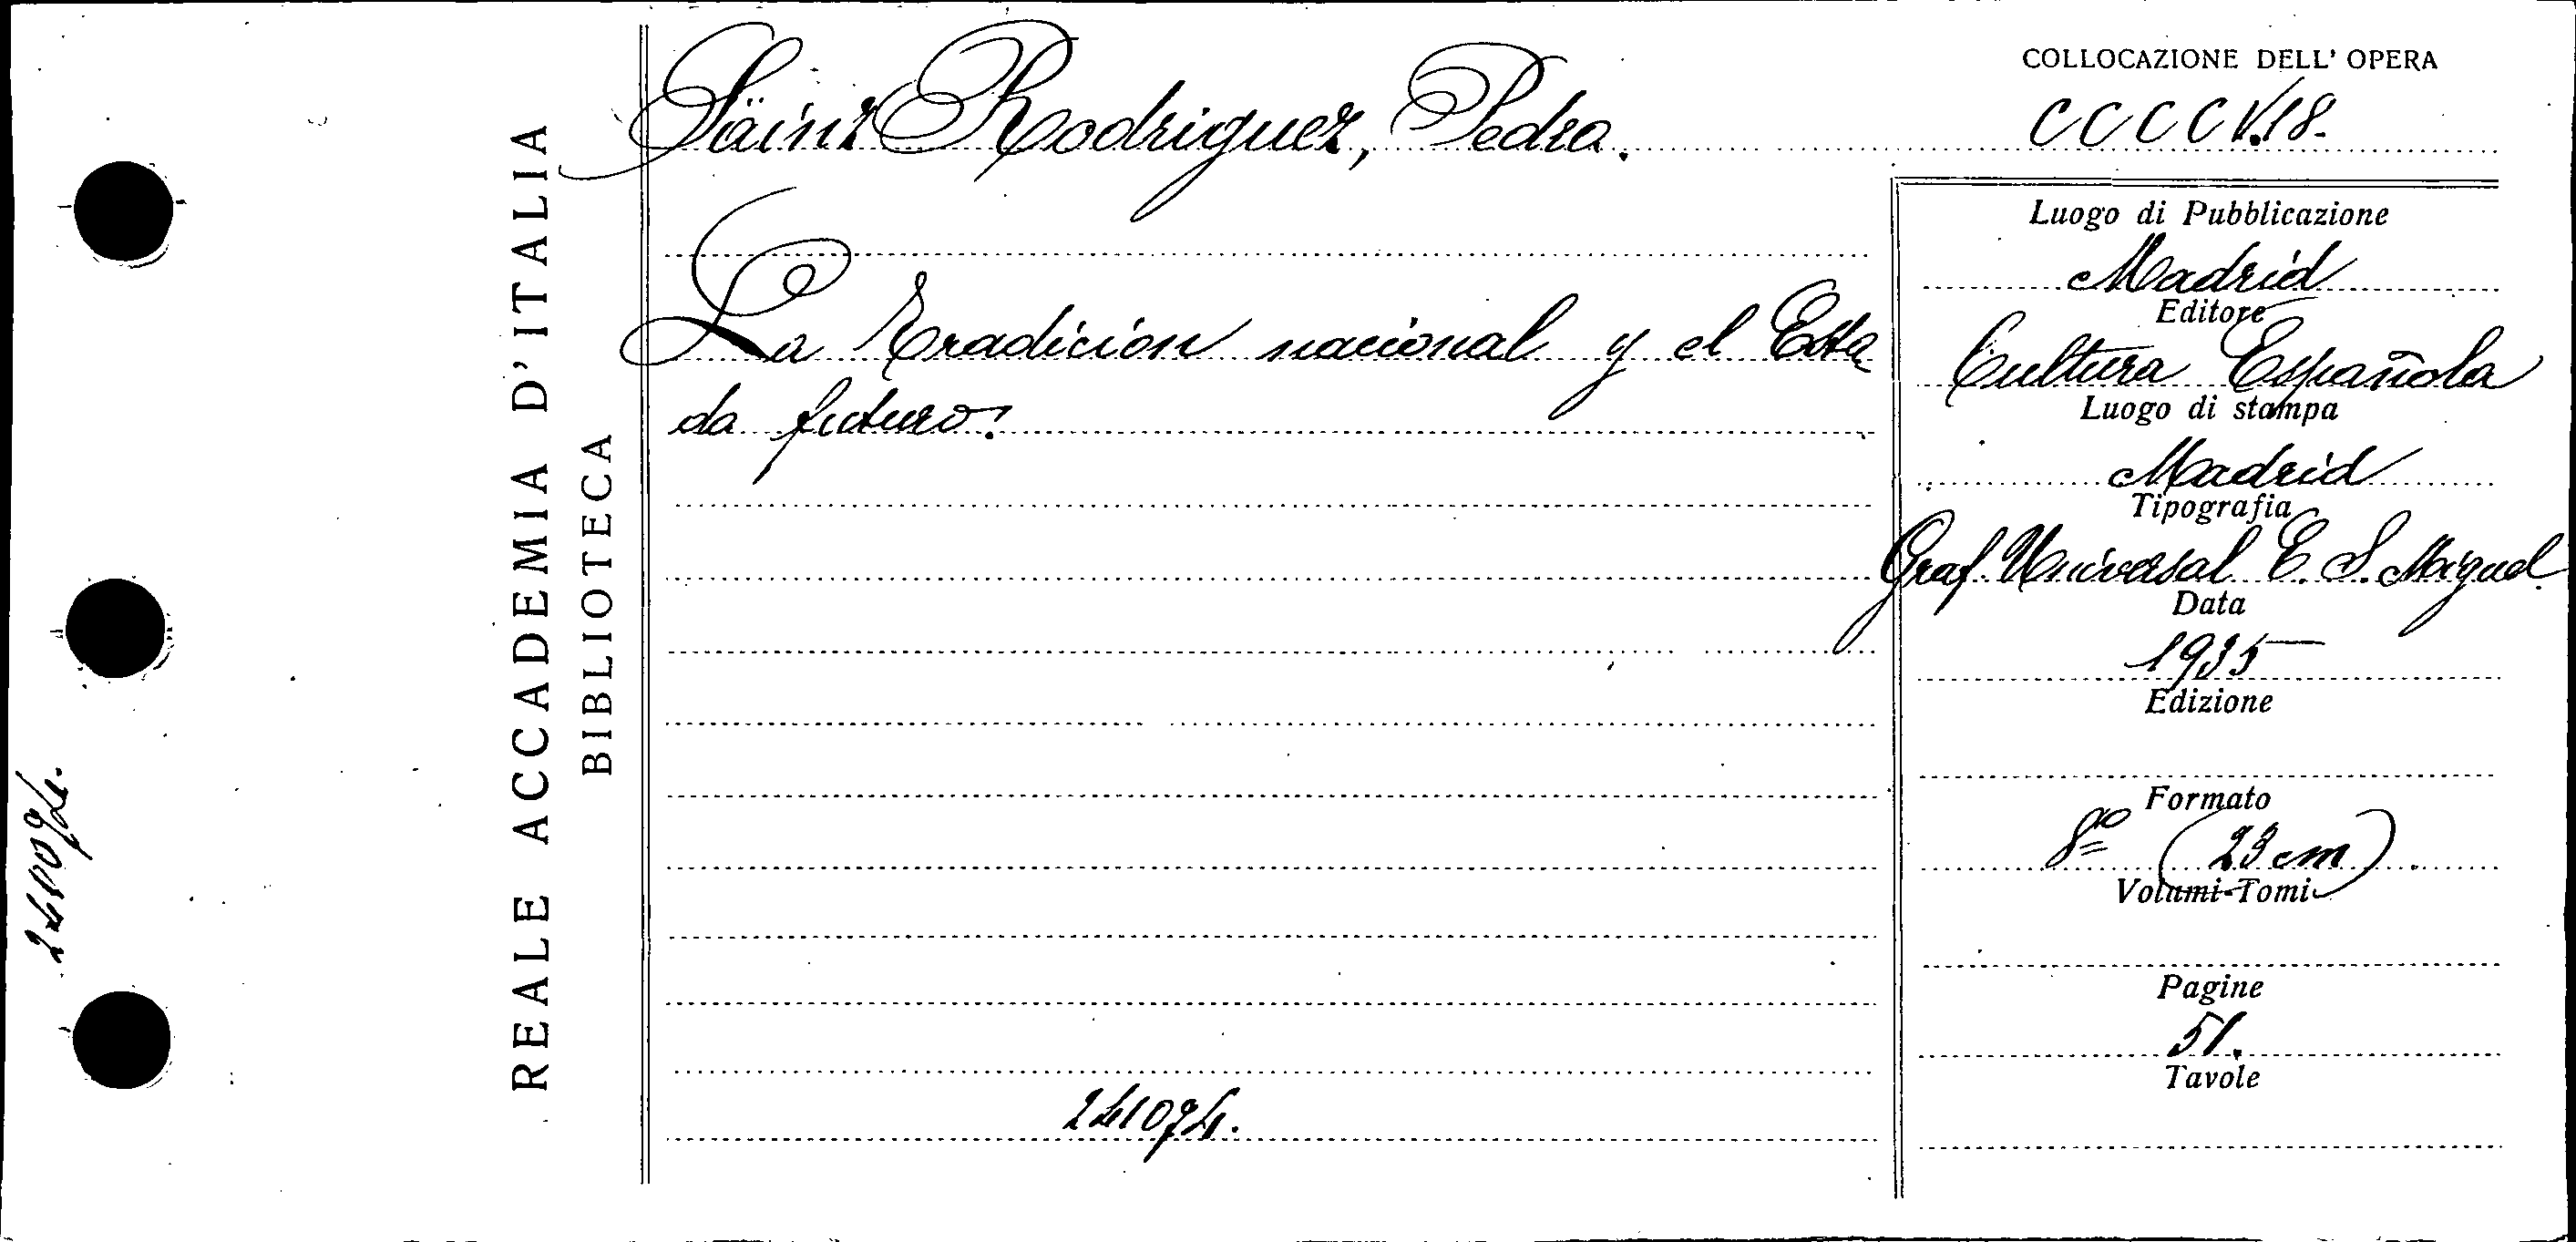 REALE ACCADEMIA D'ITALIA
BIBLIOTECA
Säinz Rodriguez, Pedro.
La Tradición nacional y el Esta
do futuro.
24074.
COLLOCAZIONE DELL' OPERA
CCCCV.18.
Luogo di Pubblicazione
Madrid
Editore
Cultura Española
Luogo di stampa
Madrid
Tipografia
Graf. Universal E. S. Miguel.
Data
1935
Edizione
Formato
8º (23 cm)
Volumi-Tomi
Pagine
51.
Tavole